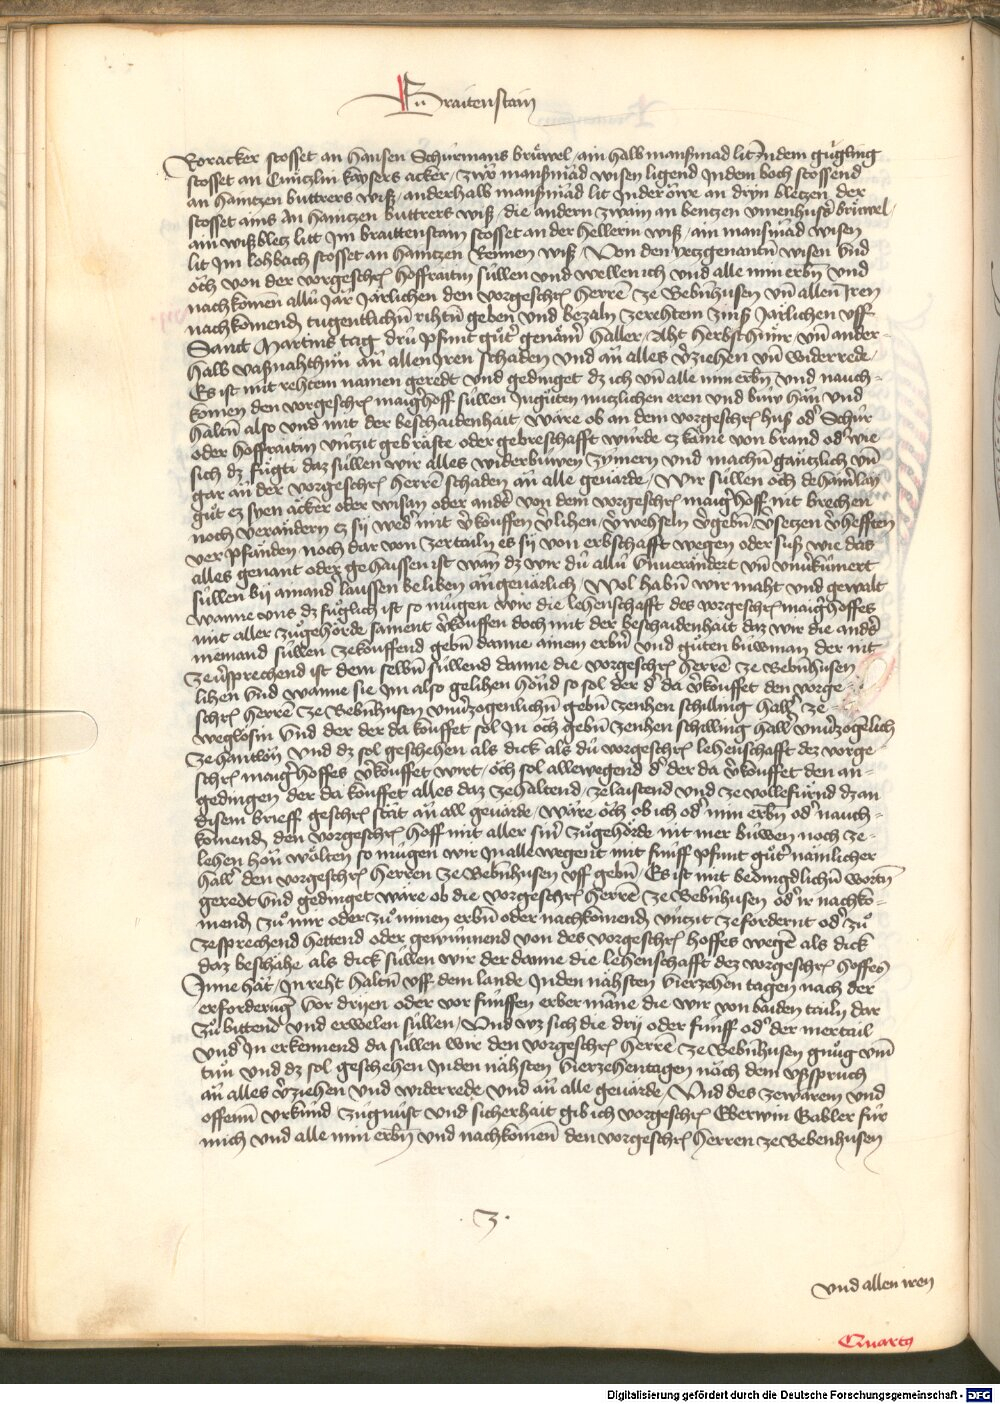 Zu Braitenstain
Roracker stosset an Hansen Schürmans brüwel / ain halb mansmad lit Jn dem gügling
stosset an Cüntzlin kaysers acker / zwo mansmad wisen ligend Jn dem boch stossend
an Haintzen buttrers wiß / anderhalb mansmad lit Jn der öwe an dryn bletzen der
stosset ains an Haintzen buttrers wiß / die andern zwain an bentzen brüwel /
ain wißbletz litt Jm braittenstain stosset an der Hellerin wiß / ain mansmad wisen
lit Jm lohbach stosset an Haintzen Remen wiß / Von den yetzgenantn wisen vnd
öch von der vorgeschrn hoffraitin süllen vnd wellen ich vnd alle min erbn vnd
nachkomen allü Jar Järlichen den vorgeschrn herrē ze Bebnhusen vn̄ allen Jren
nachkomend tugentlichn rihtn geben vnd bezaln ze rehtem zinß Järlichen uff
Sanct Martins tag drü pfunt gůter genämer haller / Aht herbsthünr vn̄ ander-
halb vaßnahthün an allen Jren schaden vnd an alles vziehen vn̄ widerrede /
Es ist mit rehtem namen geredt vnd gedinget dz ich vn̄ alle min erbn vnd nauch-
komen den vorgeschrn maigerhoff süllen Jn gůten nutzlichen eren vnd buw han vnd
haltn also vnd mit der beschaidenhait wäre ob an dem vorgeschrn huß od Schür
oder hoffraitin vntzit gebräste oder gebreschafft wurde ez käme von brand od wie
sich dz fůgti daz süllen wir alles widerbuwen zymern vnd machn gäntzlich vn̄
gar an der vorgeschrn herrē schaden an alle geuärde / Wir süllen öch dehainerlay
gůt ez syen äcker oder wisan oder anders von dem vorgeschrn maigerhoff nit brechen
noch verändern ez sij weder mit vkouffen vlihen vwehseln vgebn vsetzen vhefften
verpfänden noch dar von zertailn es sij von erbschafft wegen oder suß wie das
alles genant oder gehaissen ist wan dz wir dü allü vnuerändert vn̄ vnuerkümert
süllen bij ainand laussen beliben an geuärlich / Wol habn wir maht vnd gewalt
wanne vns dz füglich ist so mügen wir die lehenschafft des vorgeschrn maigerhoffes
mit aller zůgehörde sament vkouffen doch mit der beschaidenhait daz wir die anders
niemand süllen ze kouffend gebn danne ainem erbn vnd gůten buwman der nit
ze vsprechend ist dem selbn süllend danne die vorgeschrn herrē ze Bebnhusen
lihen vnd wanne sie Jm also gelihen hond so sol der da vkouffet den vorge-
schrn herrē ze Bebnhusen vnuerzogenlichn gebn zenhen schilling haller ze
weglösin vnd der der da kouffet sol Jn öch gebn zenhen schilling haller vnuerzogēlich
ze hantlön / vnd dz sol geschehen als dick als dü vorgeschrn lehenschafft dez vorge-
schrn maigerhoffes vkouffet wirt / öch sol allewegend der da vkouffet den an-
gedingen der da kouffet alles daz ze haltend / ze laistend vnd ze vollefürend dz an
disem brieff geschrn stät an all geuärde / Wäre öch ob ich od min erbn od nauch-
komend den vorgeschrn hoff mit aller siner zůgehörde nit mer buwen noch ze-
lehen hon wölten so mügen wir Jn allewegent mit fünff pfunt gůter nämlicher
haller den vorgeschrn herren ze Bebnhusen uff gebn / Es ist mit bedingdlichn wortn
geredt vnd gedinget wäre ob die vorgeschrn herrē ze Bebnhusen od ir nachko-
mend zů mir oder zů minen erbn oder nachkomend vntzit ze fordernt od zů
ze sprechend hettend oder gewunnend von des vorgeschrn hoffes wegē als dick
daz beschähe als dick süllen wir der danne die lehenschafft dez vorgeschrn hoffes
Jnne hät / Jn reht haltn uff dem lande Jn den nähsten vierzehen tagen nach der
erforderung vor drijen oder vor fünffen erber manne die wir von baiden tailn dar
zů bittend vnd erwelen süllen / Vnd wz sich die drij oder fünff od der mertail
vnder Jn erkennend da süllen wir den vorgeschrn herrē ze Bebnhusen gnůg vm̄
tůn vnd dz sol geschehen Jn den nähsten vierzehentagen nöch dem vßspruch
an alles vziehen vnd widerrede vnd an alle geuärde / Vnd des ze warem vnd
offenn vrkünd zügnüst vnd sicherhait gib ich vorgeschrn Eberwin Gabler für
mich vnd alle min erbn vnd nachkomen den vorgeschrn herren ze Bebenhusen
. 3 .
vnd allen iren
Quartus
Digitalisierung gefördert durch die Deutsche Forschungsgemeinschaft - DFG